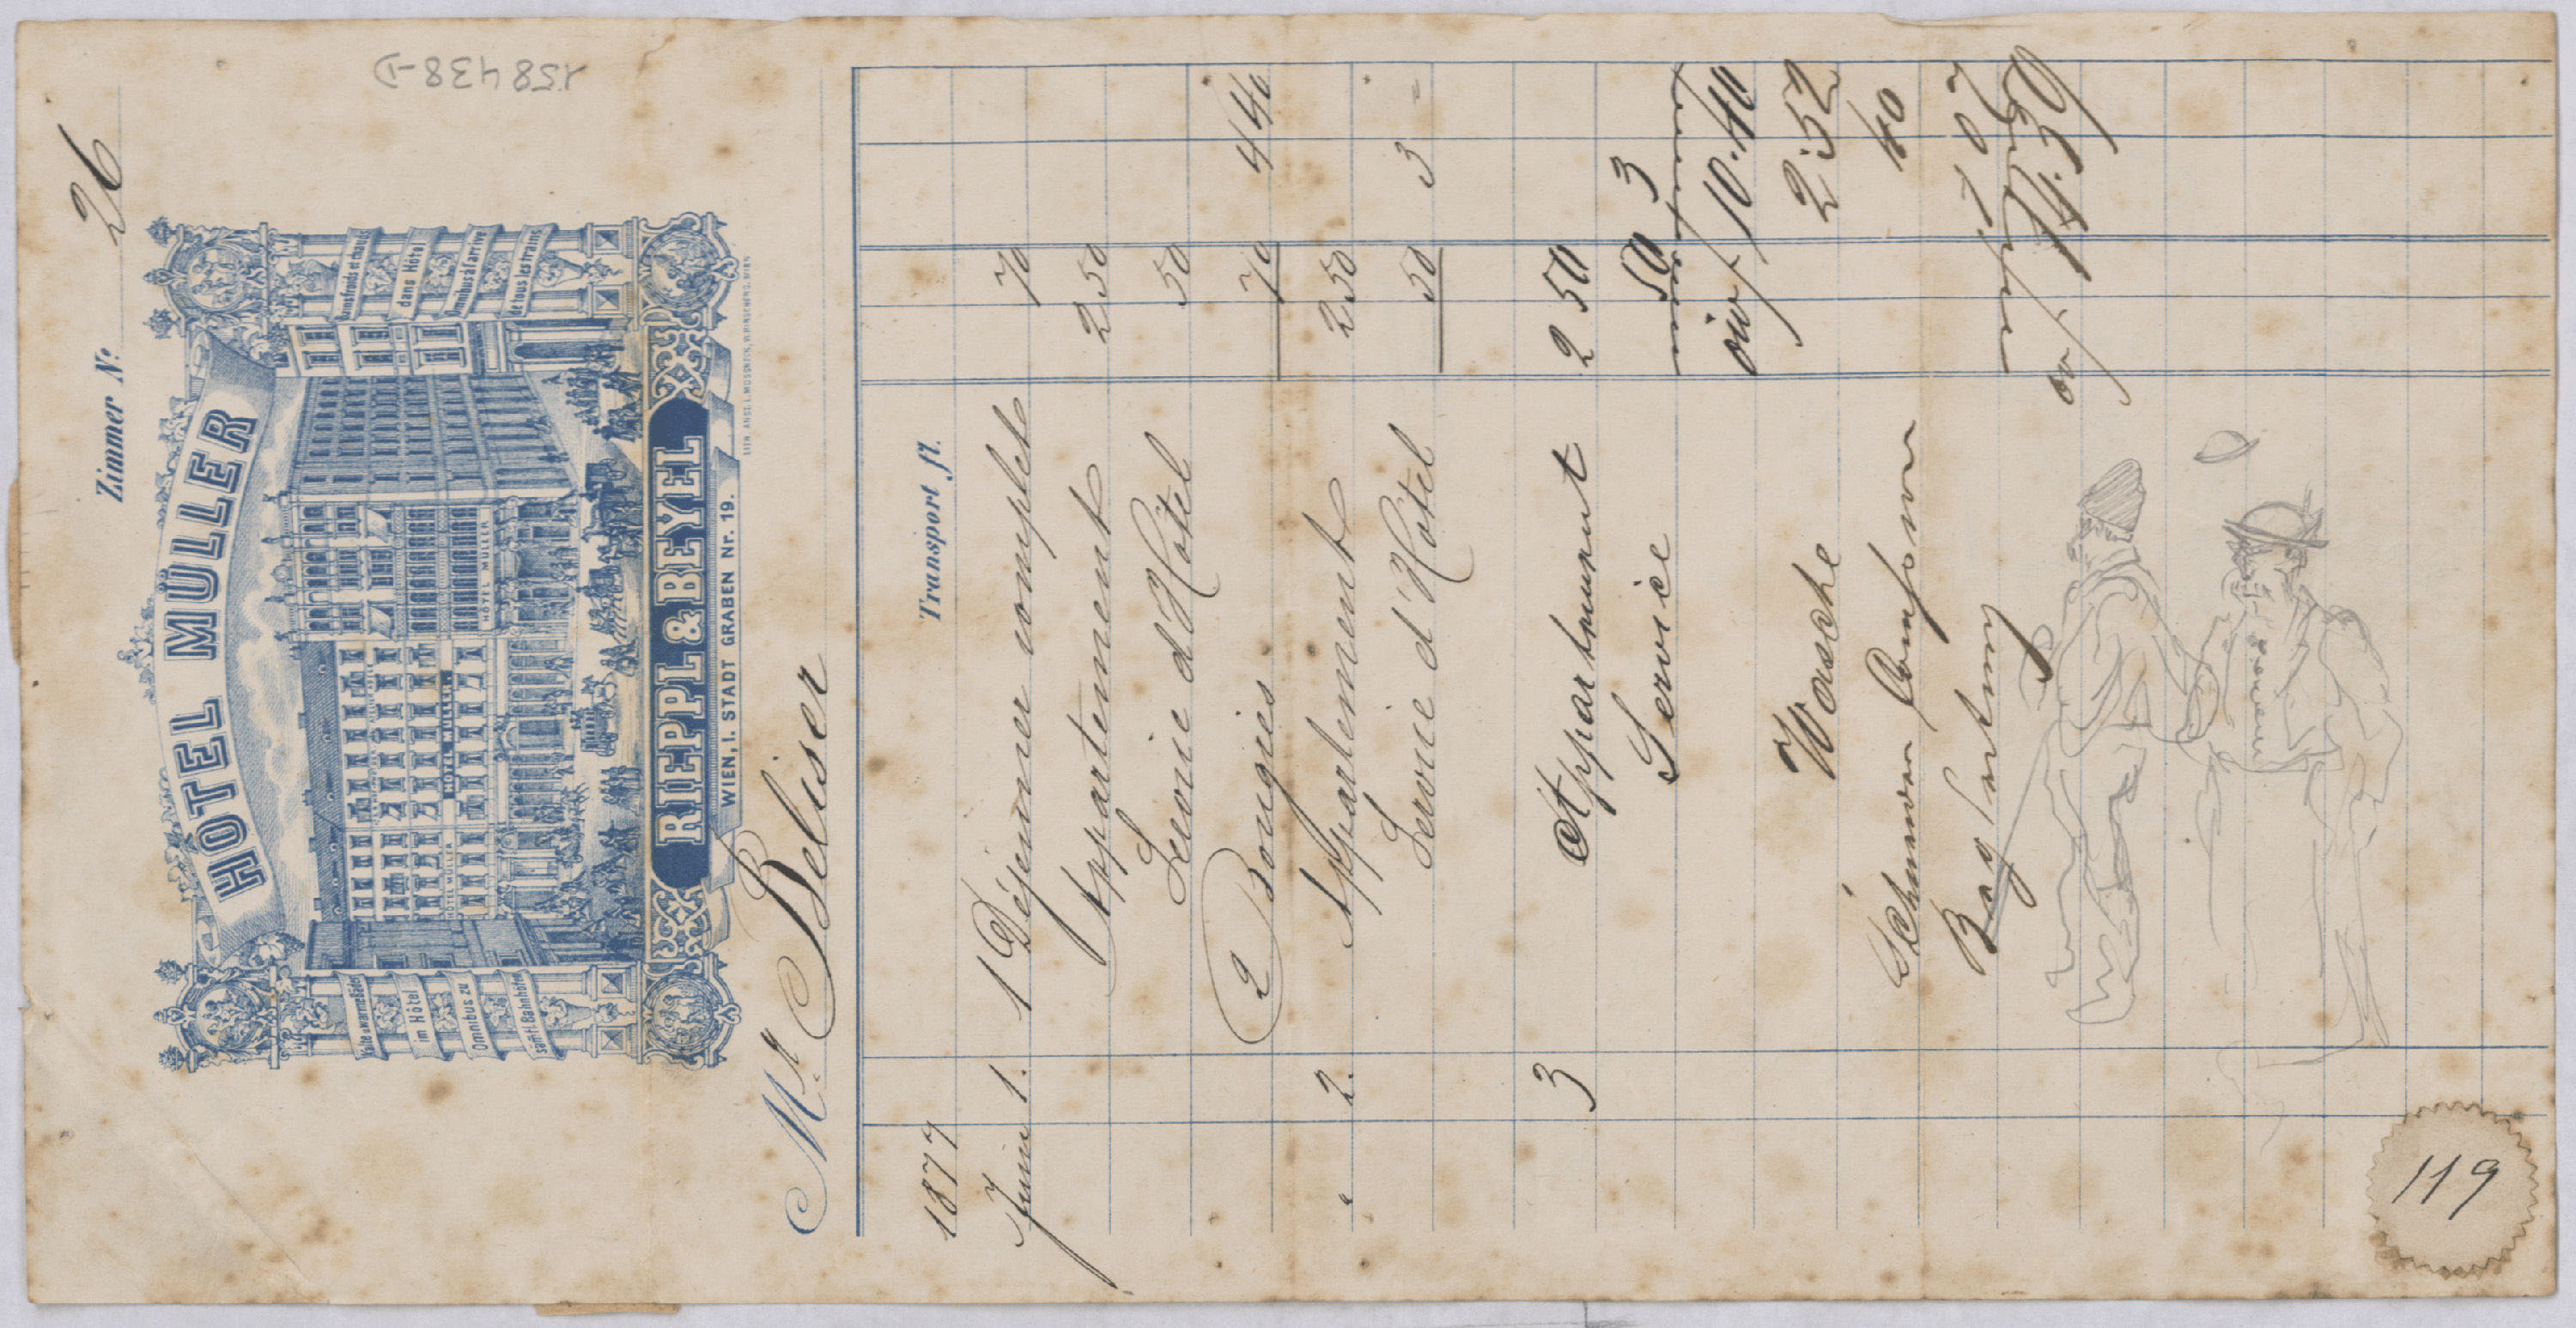 158438-D
Zimmer No. 26
HÔTEL MÜLLER
Kalte u. warme Bäder
im Hôtel
Omnibus zu
sämtl. Bahnhöfen
Bains froids et chauds
dans Hôtel
Omnibus à l'arrivé
de tous les trains
HÔTEL MÜLLER
HÔTEL MÜLLER
HÔTEL MÜLLER
RIEPPL & BEYEL
WIEN, I. STADT GRABEN Nr. 19.
Mr. Beluser
1877 Transport fl.
Juin 1. 1 Déjeuner complet 70
Appartement 2 50
Service d'Hôtel 50
2 Bougies 70 4 40
" 2. Appartement 2 50
Service d'Hôtel 50 3 -
3 Appartement 2 50
Service 50 3
10.40
Wäsche 2.52
40
14.59
119